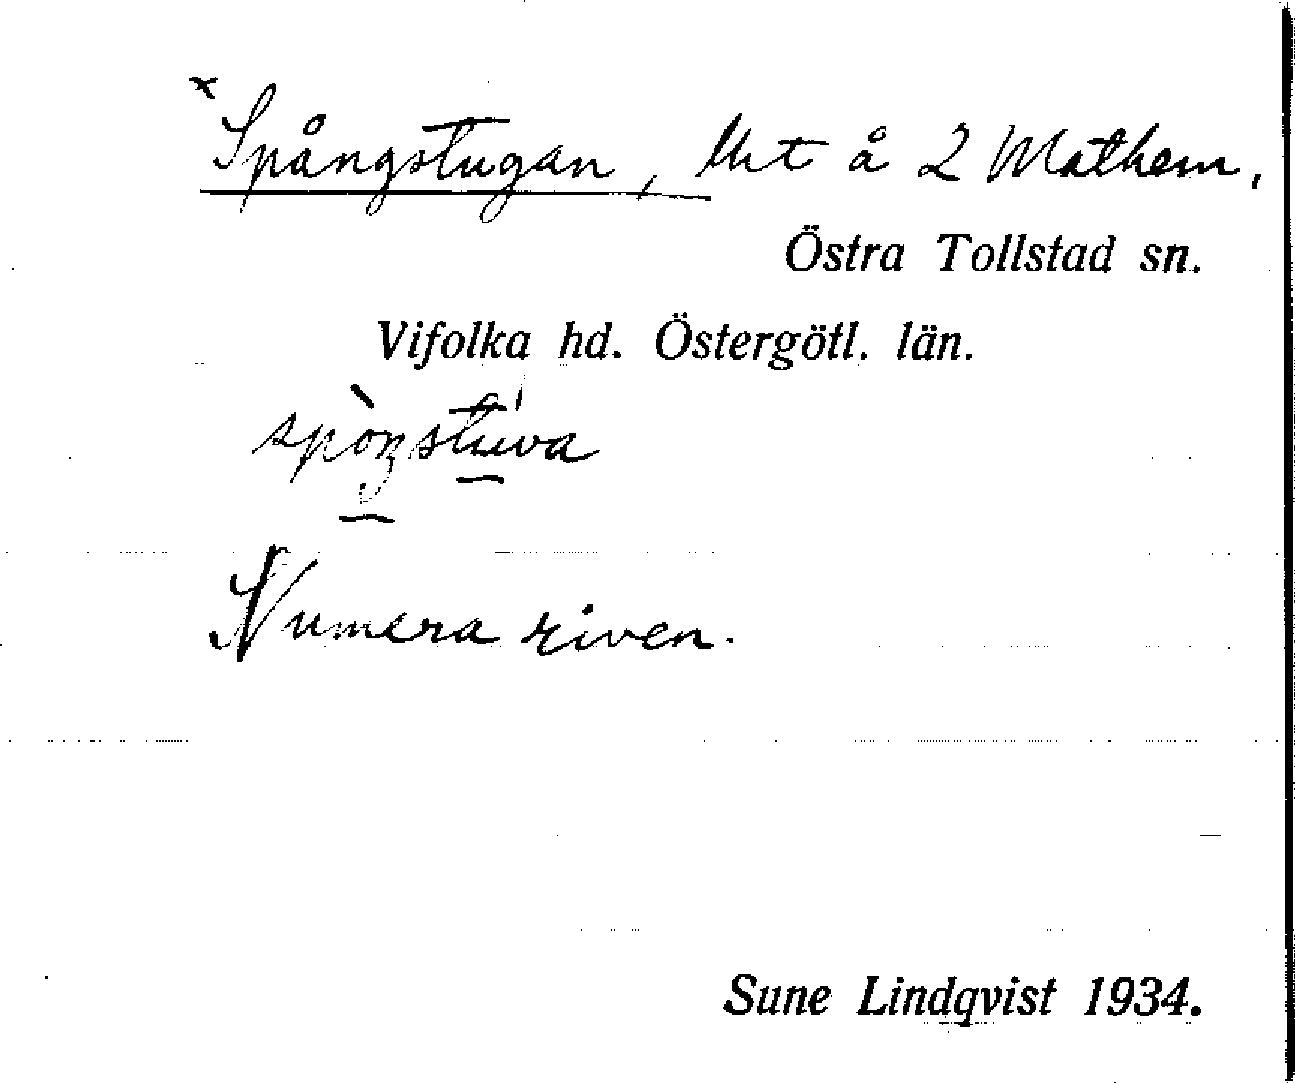 x
Spångstugan, Lht å 2 Mathem,
Östra Tollstad sn.
Vifolka hd. Östergötl. län.
spòŋstúva
Numera riven.
Sune Lindqvist 1934.